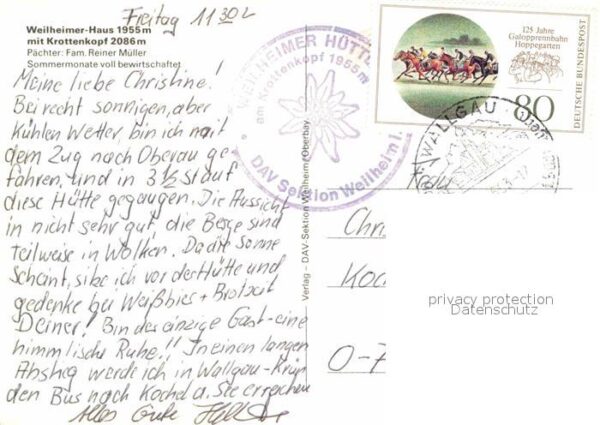 Freitag 11 30
Weilheimer-Haus 1955 m
mit Krottenkopf 2086 m
Pächter: Fam. Reiner Müller
Sommermonate voll bewirtschaftet
Meine liebe Christine!
Bei recht sonnigen, aber
kühlen Wetter, bin ich mit
dem Zug nach Oberau ge
fahren, und in 3 1/2 St auf
diese Hütte gegangen. Die Aussicht
in nicht sehr gut, die Berge sind
teilweise in Wolken. Da die Sonne
Scheint, sitze ich vor der Hütte und
gedenke bei Weißbier + Brotzeit
Deiner! Bin der einzige Gast - eine
himmlische Ruhe!! In einen langen
Abstieg werde ich in Wallgau - Krün
den Bus nach Kochel a. See erreichen
Alles Gute
Verlag - DAV-Sektion Weilheim/Oberbay.
WEILHEIMER HÜTTE
am Krottenkopf 1955 m
DAV Sektion Weilheim i.
125 Jahre
Galopprennbahn
Hoppegarten
80
DEUTSCHE BUNDESPOST
WALLGAU
Frau
Chri
Koc
O-7
privacy protection
Datenschutz